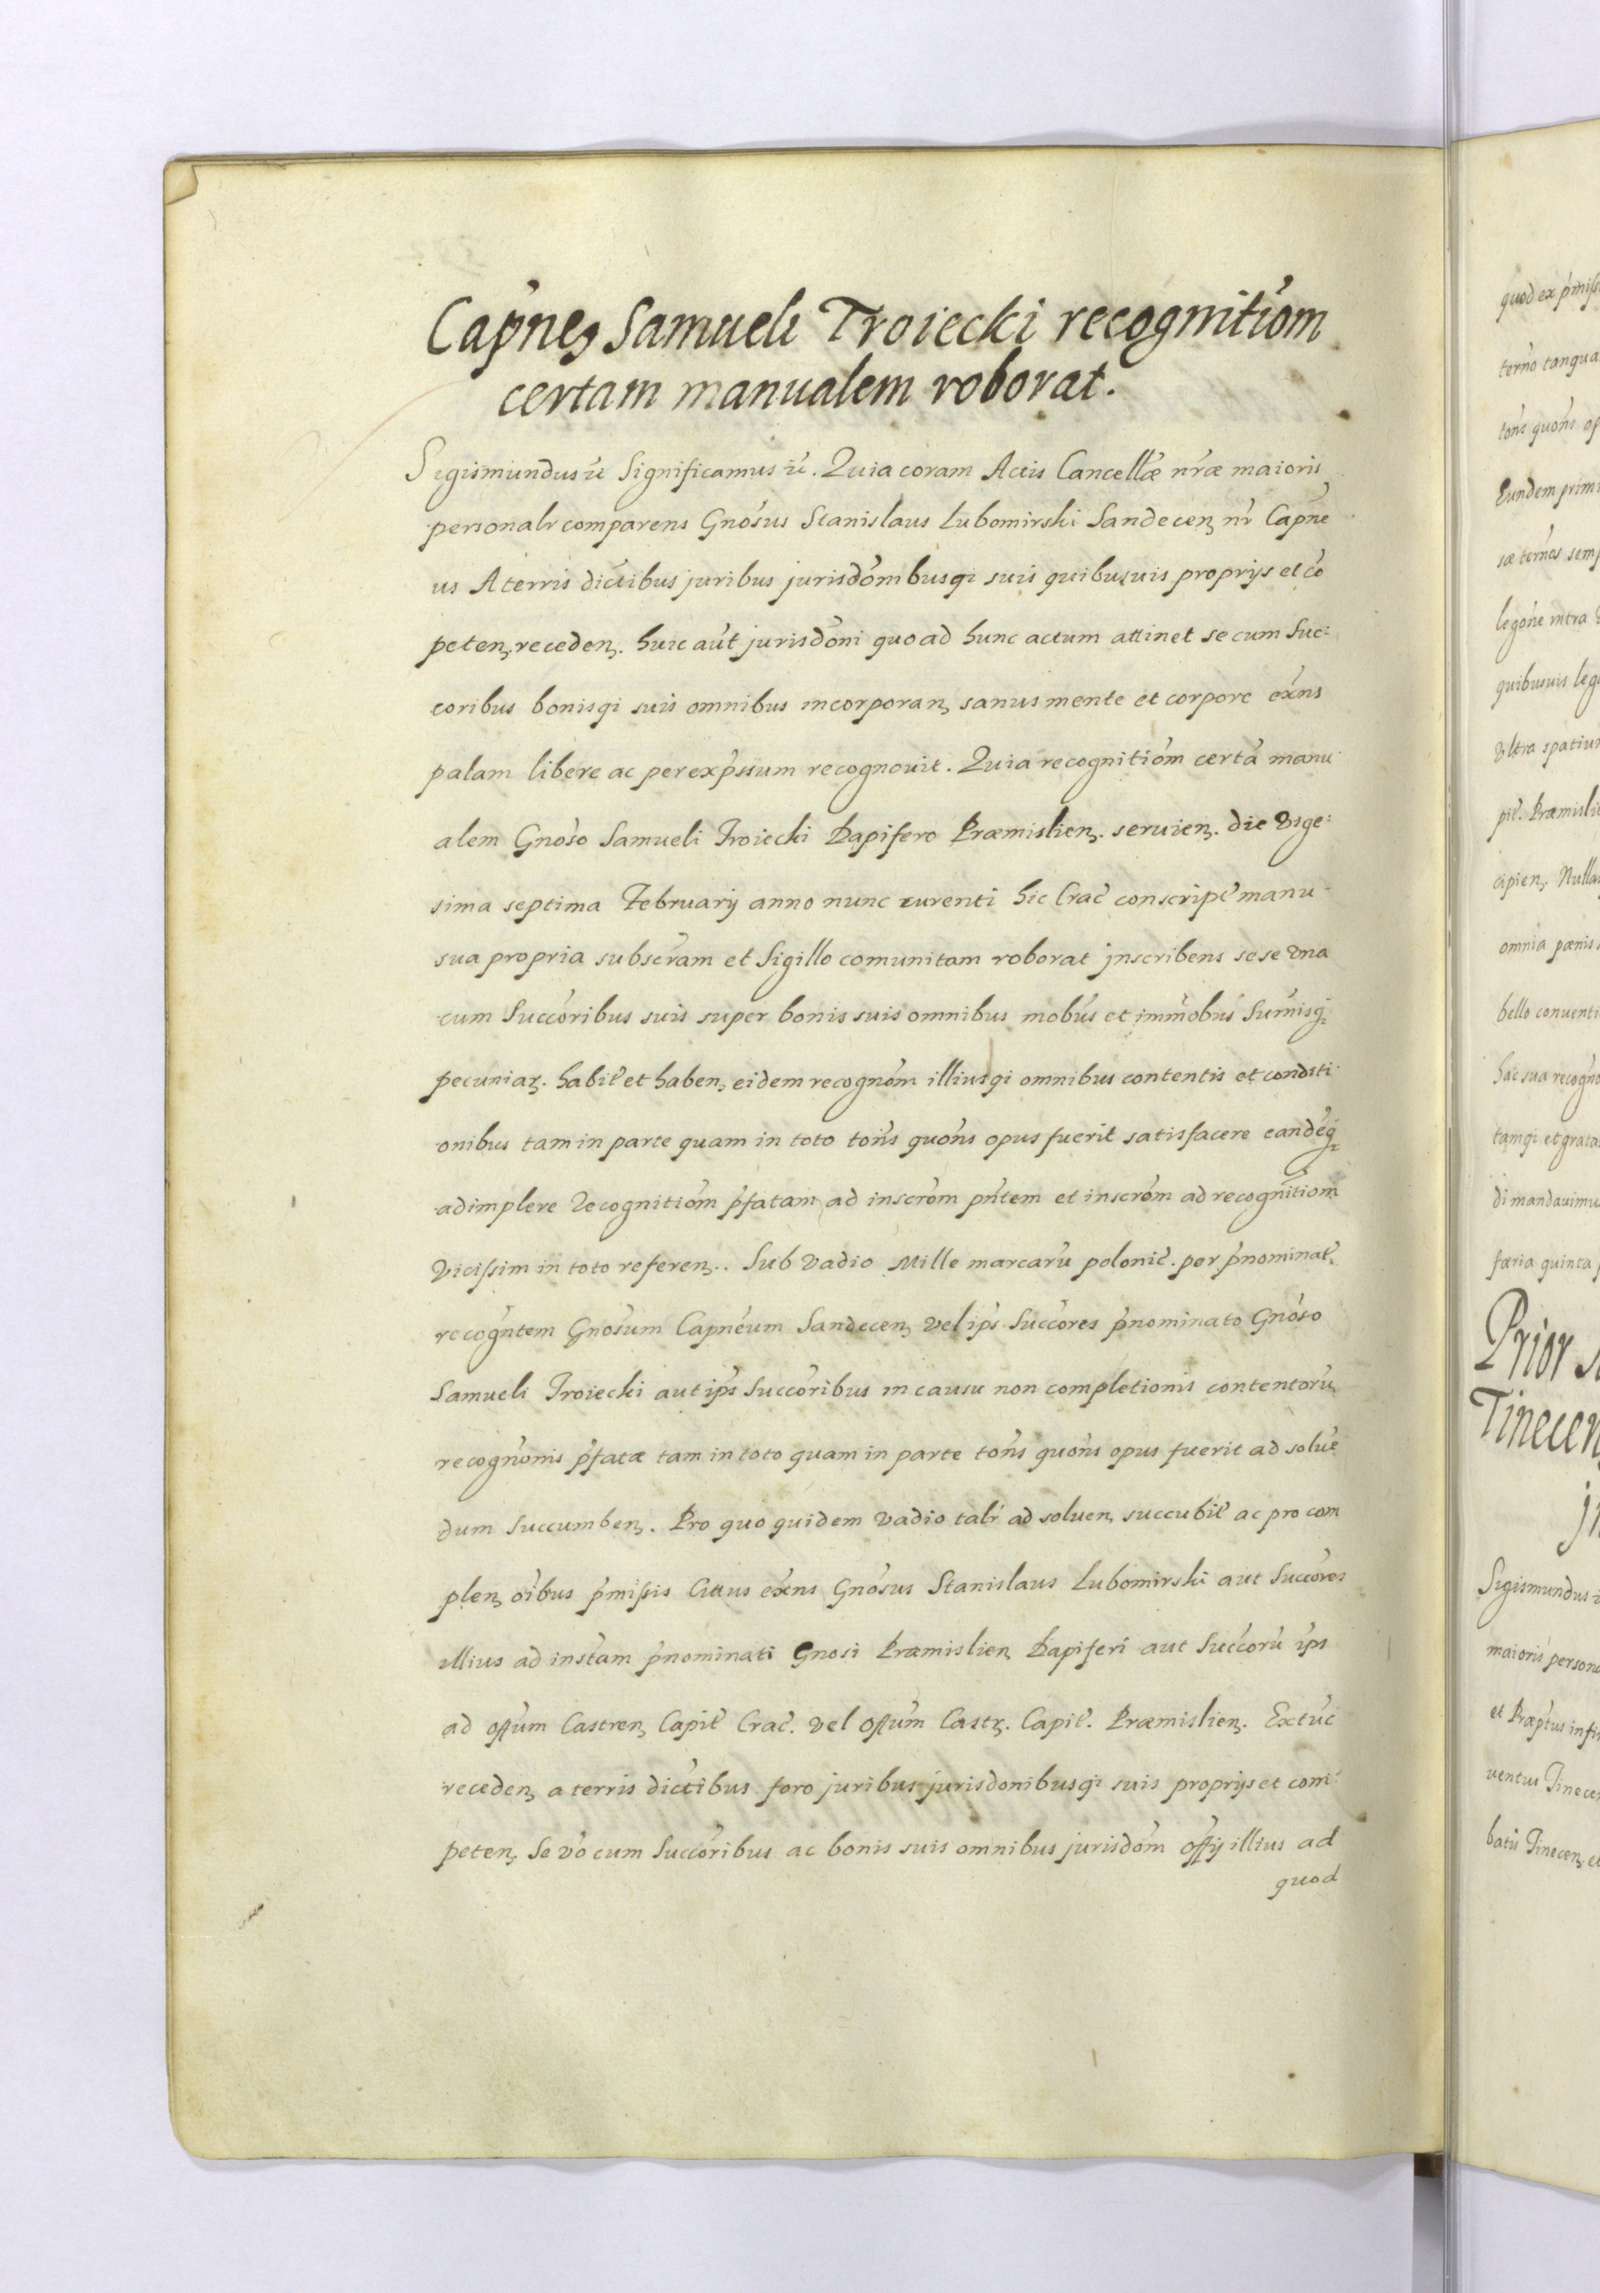 Capneꝫ Samueli Troiecki recognitiom
certam manualem roborat.
Sigismundus &c Significamus &c. Quia coram Actis Cancellæ nræ maioris
personalr comparens Gnosus Stanislaus Lubomirski Sandecenꝫ nr Capne
us A terris dictibus juribus jurisdombusqi suis quibusuis proprijs et co
petenꝫ recedenꝫ. huic aut jurisdoni quo ad hunc actum attinet se cum suc:
coribus bonisqi suis omnibus incorporanꝫ sanus mente et corpore exns
palam libere ac per expssum recognouit. Quia recognitiom certa manu
alem Gnoso Samueli Troiecki Dapifero Præmislienꝫ. seruienꝫ. die vige:
sima septima Februarij anno nunc currenti hic Crac conscript manu
sua propria subscram et Sigillo comunitam roborat jnscribens sese vna
cum Succoribus suis super bonis suis omnibus mobus et jmmobus Sumisq
pecuniarꝫ. habit et habenꝫ eidem recognom illiusqi omnibus contentis et conditi
onibus tam in parte quam in toto tons quons opus fuerit satisfacere eandeq
adimplere recognitiom pfatam ad inscrom pntem et inscrom ad recognitiom
vicissim in toto referenꝫ.. Sub vadio Mille marcaru polonic. per pnominat.
recogntem Gnosum Capneum Sandecenꝫ vel ips Succores pnominato Gnoso
Samueli Troiecki aut ips Succoribus in causu non completionis contentoru
recognonis pfatæ tam in toto quam in parte tons quons opus fuerit ad solue
dum succumbenꝫ. Pro quo quidem vadio tali ad soluenꝫ succubit ac pro com
plenꝫ oibus pmissis Cittus exns Gnosus Stanislaus Lubomirski aut Succores
illius ad instam pnominati Gnosi Præmislienꝫ Dapiferi aut Succoru ips
ad offum Castrenꝫ Capit Crac. vel offum Castrꝫ. Capit. Præmislienꝫ. Extuc
recedenꝫ a terris dictibus foro juribus jurisdonibusqi suis proprijs et com:
petenꝫ Se vo cum Succoribus ac bonis suis omnibus jurisdom offij illius ad
quod
quod ex pmiss
Eundem prim
quibusuis leg
vltra spatiu
omnia pœnis
bello conuenti
hac sua recogno
tamqi et grata
di mandauimu
færia quinta
Prior
Tinecenꝫ
Sigismundus
maioris person